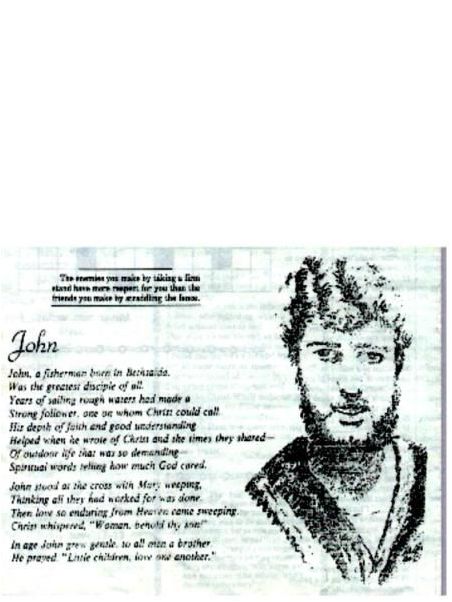 The enemies you make by taking a firm
stand have more respect for you than the
friends you make by straddling the fence.
John
John, a fisherman born in Bethsaida,
Was the greatest disciple of all.
Years of sailing rough waters had made a
Strong follower, one on whom Christ could call.
His depth of faith and good understanding
Helped when he wrote of Christ and the times they shared—
Of outdoor life that was so demanding—
Spiritual words telling how much God cared.
John stood at the cross with Mary weeping,
Thinking all they had worked for was done.
Then love so enduring from Heaven came sweeping.
Christ whispered, "Woman, behold thy son!"
In age John grew gentle, to all men a brother.
He prayed, "Little children, love one another."